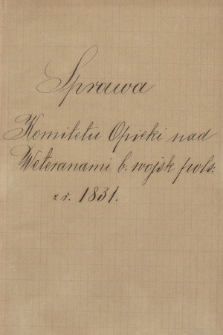 Sprawa
Komitetu Opieki nad
Weteranami b. wojsk pols.
z r. 1831.